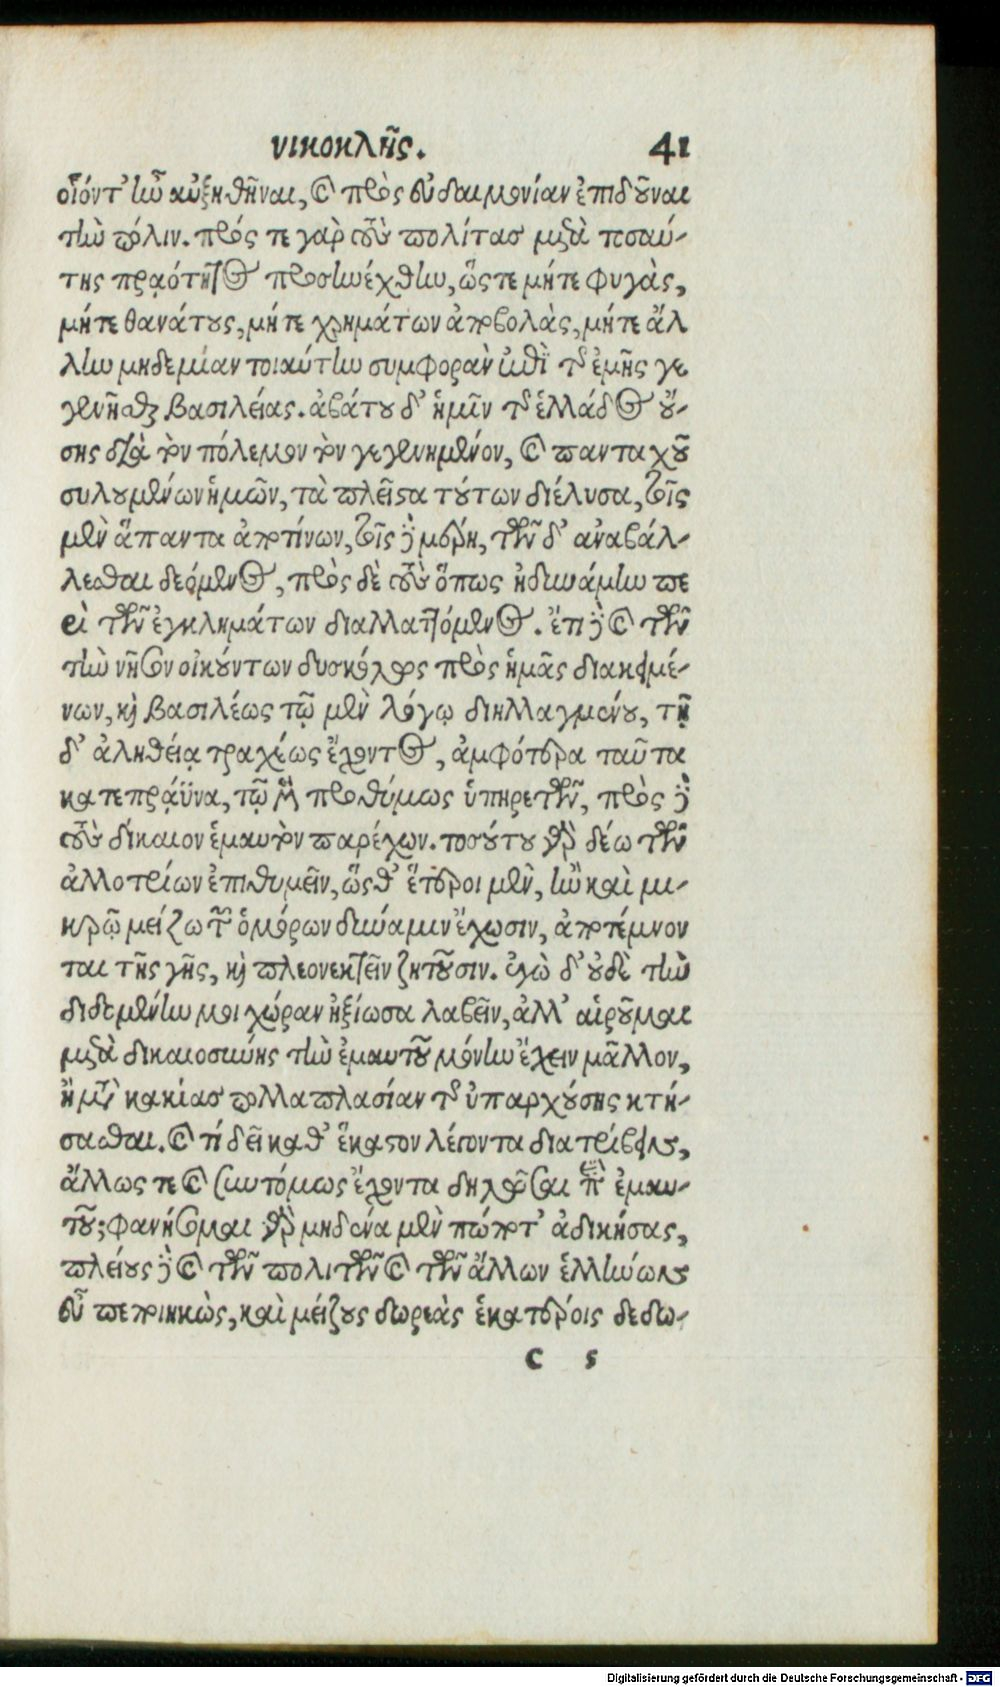 νικοκλῆς. 41
οἷόντ' ἦν αὐξηθῆναι, καὶ πρὸς εὐδαιμονίαν ἐπιδοῦναι
τὴν πόλιν. πρός τε γὰρ τοὺς πολίτας μετὰ τοσαύ-
της πραότητος προσηνέχθην, ὥςτε μήτε φυγὰς,
μήτε θανάτους, μήτε χρημάτων ἀποβολὰς, μήτε ἄλ
λην μηδεμίαν τοιαύτην συμφορὰν ἐπὶ τῆς ἐμῆς γε
γενῆσθαι βασιλείας. ἀβάτου δ' ἡμῖν τῆς ἑλλάδος οὔ-
σης διὰ τὸν πόλεμον τὸν γεγενημένον, καὶ πανταχοῦ
συλουμένων ἡμῶν, τὰ πλεῖστα τούτων διέλυσα, τοῖς
μὲν ἅπαντα ἀποτίνων, τοῖς δὲ μέρη, τῶν δ' ἀναβάλ-
λεσθαι δεόμενος, πρὸς δὲ τοὺς ὅπως ἠδυνάμην πε
ρὶ τῶν ἐγκλημάτων διαλλαττόμενος. ἔτι δὲ καὶ τῶν
τὴν νῆσον οἰκούντων δυσκόλως πρὸς ἡμᾶς διακειμέ-
νων, καὶ βασιλέως τῷ μὲν λόγῳ διηλλαγμένου, τῇ
δ' ἀληθείᾳ τραχέως ἔχοντος, ἀμφότερα ταῦτα
κατεπράϋνα, τῷ μὲν προθύμως ὑπηρετῶν, πρὸς δὲ
τοὺς δίκαιον ἐμαυτὸν παρέχων. τοσούτου γὰρ δέω τῶν
ἀλλοτρίων ἐπιθυμεῖν, ὥςθ' ἕτεροι μὲν, ἢν καὶ μι-
κρῷ μείζω τῶν ὁμόρων δύναμιν ἔχωσιν, ἀποτέμνον
ται τῆς γῆς, καὶ πλεονεκτεῖν ζητοῦσιν. ἐγὼ δ' οὐδὲ τὴν
διδομένην μοι χώραν ἠξίωσα λαβεῖν, ἀλλ' αἱροῦμαι
μετὰ δικαιοσύνης τὴν ἐμαυτοῦ μόνην ἔχειν μᾶλλον,
ἢ μετὰ κακίας πολλαπλασίαν τῆς ὑπαρχούσης κτή-
σασθαι. καὶ τί δεῖ καθ' ἕκαστον λέγοντα διατρίβειν,
ἄλλως τε καὶ συντόμως ἔχοντα δηλῶσαι περὶ ἐμαυ-
τοῦ; φανήσομαι γὰρ μηδένα μὲν πώποτ' ἀδικήσας,
πλείους δὲ καὶ τῶν πολιτῶν καὶ τῶν ἄλλων ἑλλήνων
εὖ πεποιηκὼς, καὶ μείζους δωρεὰς ἑκατέροις δεδω-
C 5
Digitalisierung gefördert durch die Deutsche Forschungsgemeinschaft - DFG